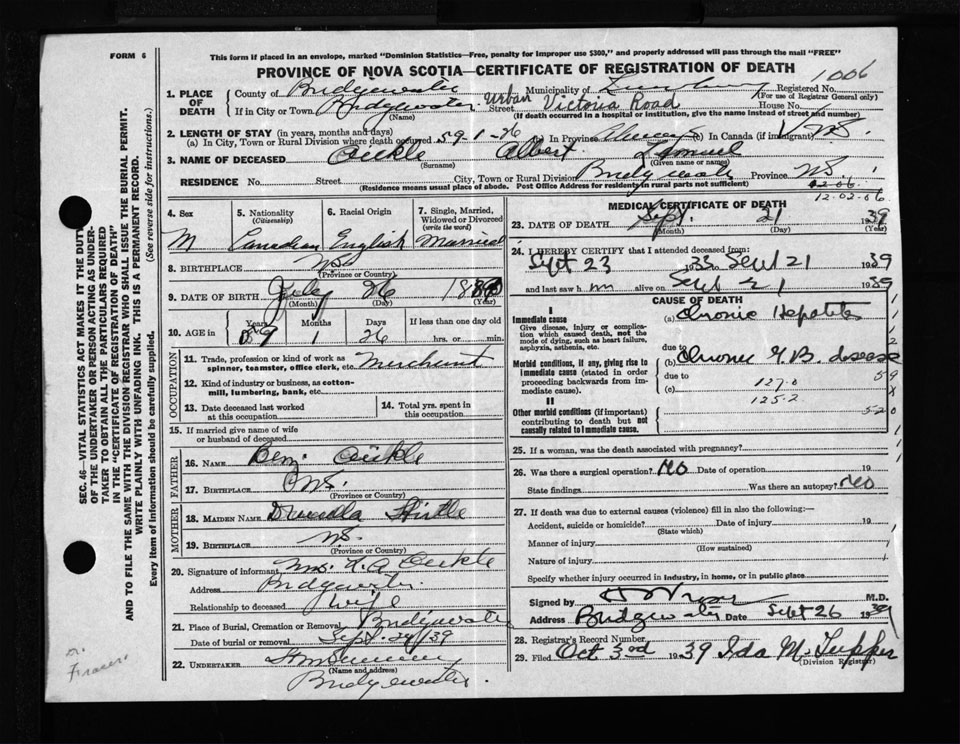 FORM 6
This form if placed in an envelope, marked "Dominion Statistics—Free, penalty for improper use $300," and properly addressed will pass through the mail "FREE"
PROVINCE OF NOVA SCOTIA—CERTIFICATE OF REGISTRATION OF DEATH
1006
1. PLACE OF DEATH
County of Bridgewater Municipality of Registered No.
(For use of Registrar General only)
If in City or Town Bridgewater urban Street Victoria Road House No.
(Name) (If death occurred in a hospital or institution, give its name instead of street and number)
2. LENGTH OF STAY (in years, months and days)
(a) In City, Town or Rural Division where death occurred 59-1-26 (b) In Province Always (c) In Canada (if immigrant)
3. NAME OF DECEASED Oickle Albert Lemuel
(Surname) (Given name or names)
RESIDENCE No. Street City, Town or Rural Division Bridgewater Province NS
(Residence means usual place of abode. Post Office Address for residents in rural parts not sufficient)
12.06.
12.02.06
4. Sex
M
5. Nationality (Citizenship)
Canadian
6. Racial Origin
English
7. Single, Married, Widowed or Divorced (write the word)
Married
8. BIRTHPLACE NS
(Province or Country)
9. DATE OF BIRTH July 26 1880
(Month) (Day) (Year)
10. AGE in Years Months Days If less than one day
59 1 26 hrs. or min.
OCCUPATION
11. Trade, profession or kind of work as spinner, teamster, office clerk, etc. Merchant
12. Kind of industry or business, as cotton-mill, lumbering, bank, etc.
13. Date deceased last worked at this occupation
14. Total yrs. spent in this occupation
15. If married give name of wife or husband of deceased
FATHER
16. Name Benj. Oickle
17. Birthplace NS.
(Province or Country)
MOTHER
18. Maiden Name Drucilla Hirtle
19. Birthplace NS.
(Province or Country)
20. Signature of informant Mrs. L. A Oickle
Address Bridgewater.
Relationship to deceased Wife
21. Place of Burial, Cremation or Removal Bridgewater
Date of burial or removal Sept. 24/39
22. UNDERTAKER
(Name and address)
Bridgewater.
MEDICAL CERTIFICATE OF DEATH
23. DATE OF DEATH Sept. 21 1939
(Month) (Day) (Year)
24. I HEREBY CERTIFY that I attended deceased from:
Sept 23 1933 Sept 21 1939
and last saw him alive on Sept 21 1939
CAUSE OF DEATH
I
Immediate cause (a) Chronic Hepatitis
Give disease, injury or complication which caused death, not the mode of dying, such as heart failure, asphyxia, asthenia, etc.
due to
Morbid conditions, if any, giving rise to immediate cause (stated in order proceeding backwards from immediate cause).
(b) Chronic G.B. disease
due to
(c) 127.0
125.2
II
Other morbid conditions (if important) contributing to death but not causally related to immediate cause.
520
25. If a woman, was the death associated with pregnancy?
26. Was there a surgical operation? No Date of operation 19
State findings Was there an autopsy? No
27. If death was due to external causes (violence) fill in also the following:—
Accident, suicide or homicide? Date of injury 19
(State which)
Manner of injury
(How sustained)
Nature of injury
Specify whether injury occurred in industry, in home, or in public place
Signed by M.D.
Address Bridgewater Date Sept 26 1939
28. Registrar's Record Number
29. Filed Oct 3rd 1939 Ida M. Tupper
(Division Registrar)
SEC. 46—VITAL STATISTICS ACT MAKES IT THE DUTY
OF THE UNDERTAKER OR PERSON ACTING AS UNDERTAKER TO OBTAIN ALL THE PARTICULARS REQUIRED
IN THE "CERTIFICATE OF REGISTRATION OF DEATH"
AND TO FILE THE SAME WITH THE DIVISION REGISTRAR WHO SHALL ISSUE THE BURIAL PERMIT.
WRITE PLAINLY WITH UNFADING INK. THIS IS A PERMANENT RECORD.
Every item of information should be carefully supplied. (See reverse side for instructions.)